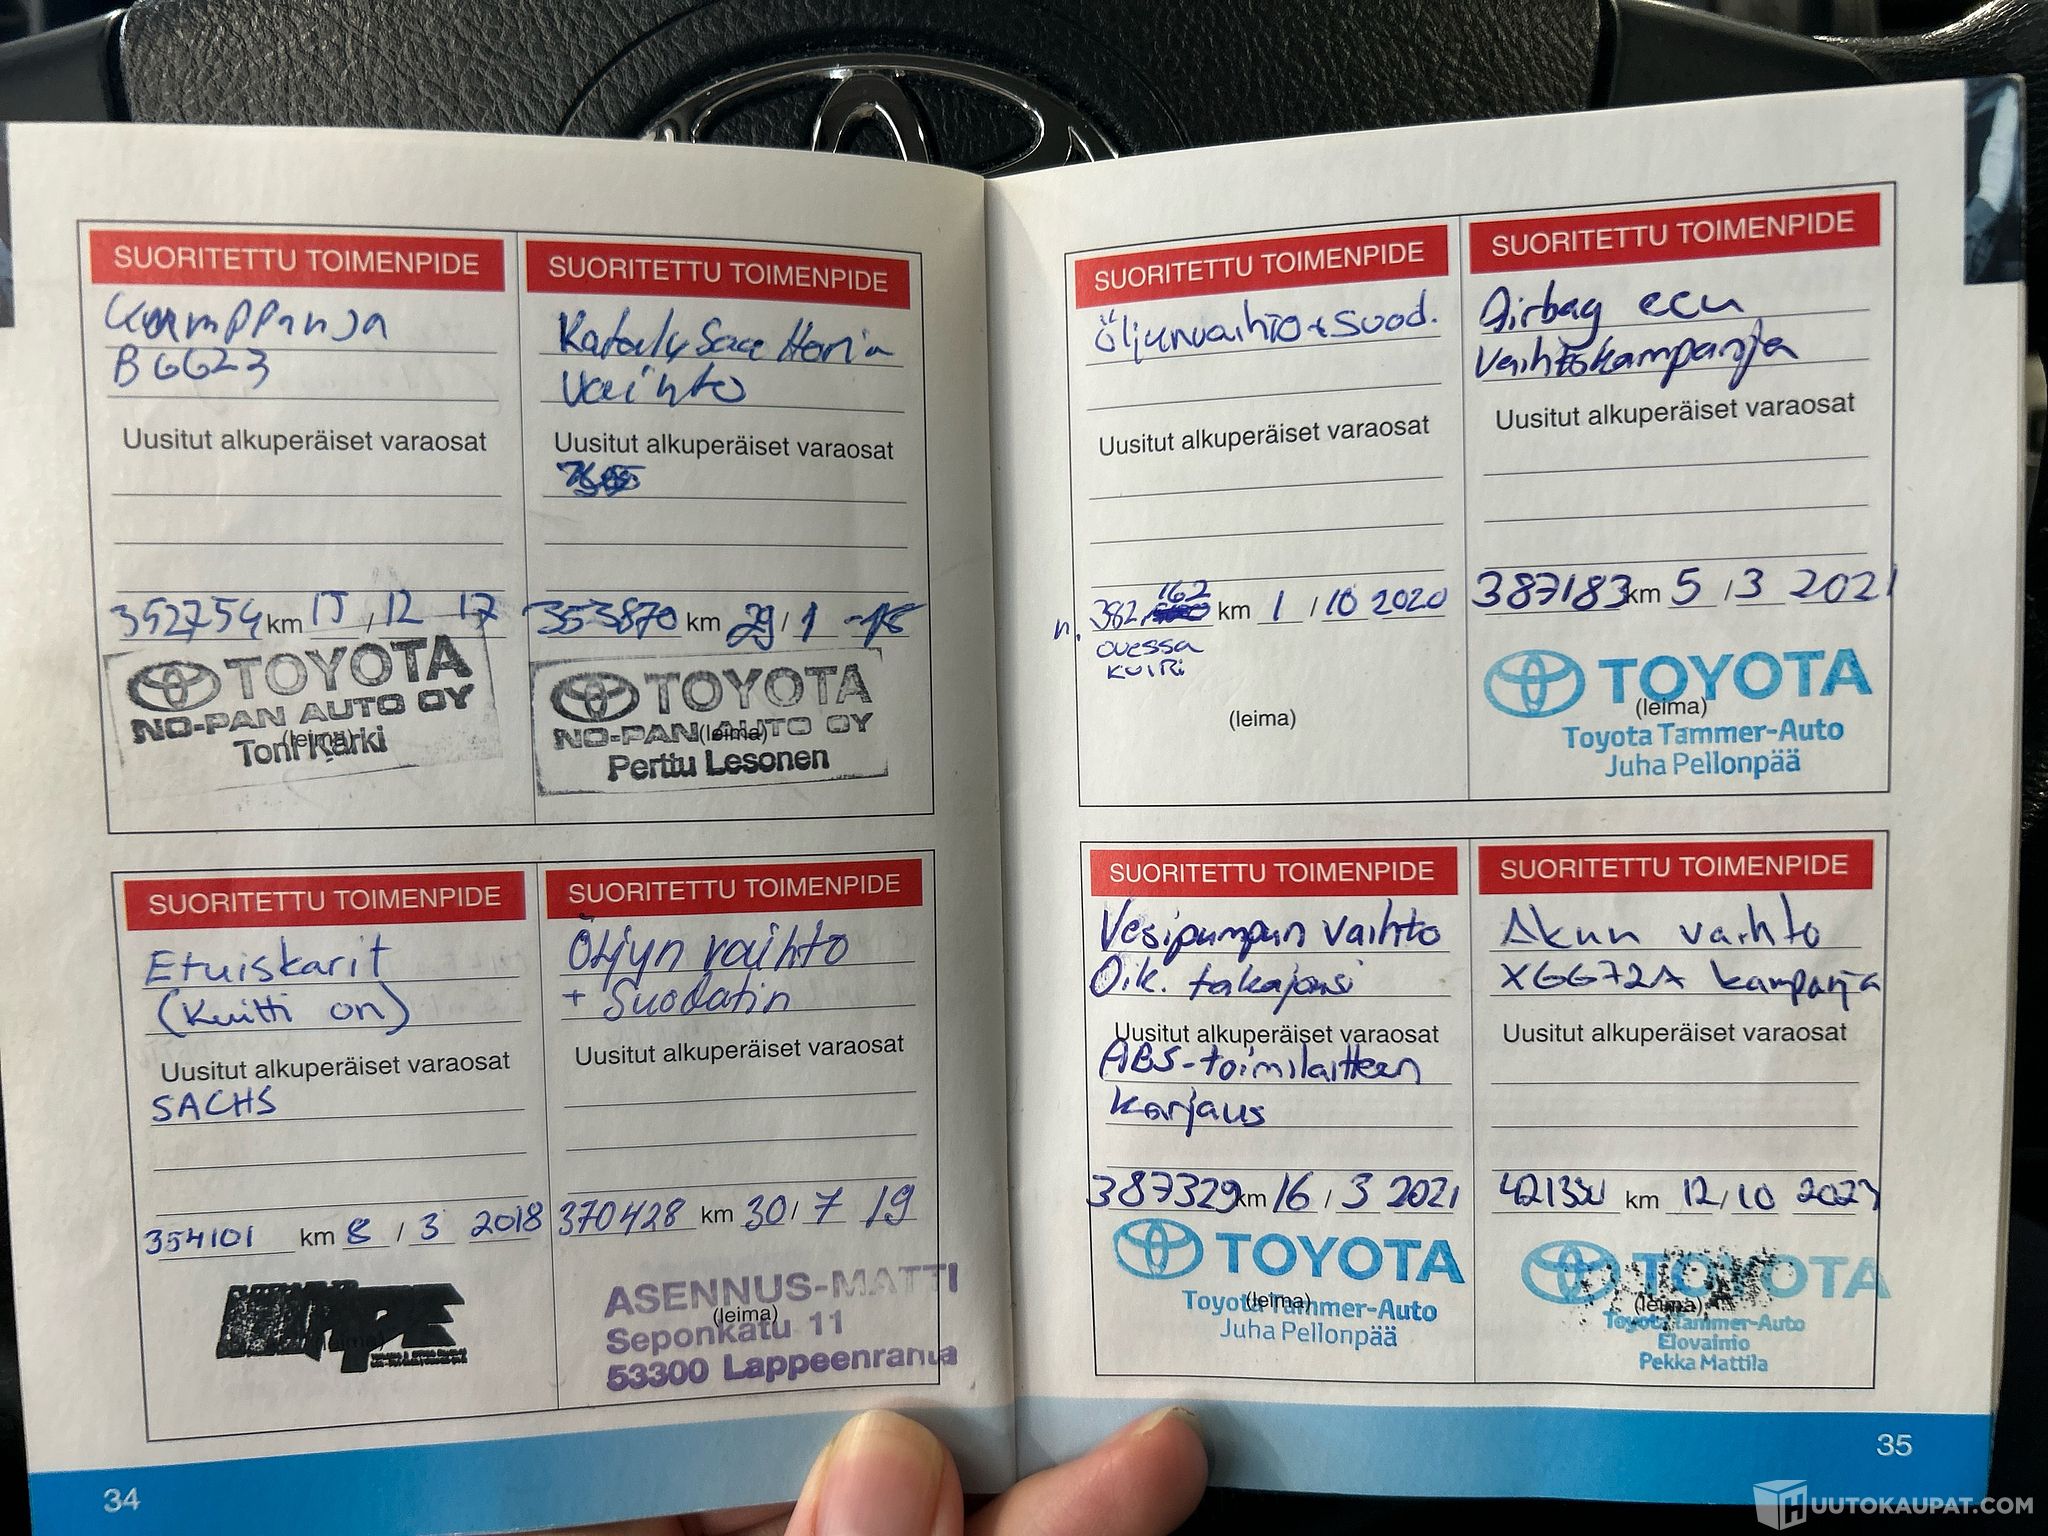 SUORITETTU TOIMENPIDE
Kamppanja
BGG23
Uusitut alkuperäiset varaosat
352754 km 15 / 12 17
TOYOTA
NO-PAN AUTO OY
(leima)
Toni Kärki
SUORITETTU TOIMENPIDE
Katalysaattorin
vaihto
Uusitut alkuperäiset varaosat
353870 km 29 / 1 -18
TOYOTA
NO-PAN AUTO OY
(leima)
Perttu Lesonen
SUORITETTU TOIMENPIDE
Etuiskarit
(kuitti on)
Uusitut alkuperäiset varaosat
SACHS
354101 km 8 / 3 2018
(leima)
SUORITETTU TOIMENPIDE
Öljyn vaihto
+ Suodatin
Uusitut alkuperäiset varaosat
370428 km 30 / 7 19
ASENNUS-MATTI
(leima)
Seponkatu 11
53300 Lappeenranta
34
SUORITETTU TOIMENPIDE
Öljynvaihto + Suod.
Uusitut alkuperäiset varaosat
162
n. 382 km 1 / 10 2020
ovessa
KUIRI
(leima)
SUORITETTU TOIMENPIDE
Airbag ecu
Vaihtokampanja
Uusitut alkuperäiset varaosat
387183 km 5 / 3 2021
TOYOTA
(leima)
Toyota Tammer-Auto
Juha Pellonpää
SUORITETTU TOIMENPIDE
Vesipumpun vaihto
Oik. takajousi
Uusitut alkuperäiset varaosat
ABS-toimilaitteen
korjaus
387329 km 16 / 3 2021
TOYOTA
(leima)
Toyota Tammer-Auto
Juha Pellonpää
SUORITETTU TOIMENPIDE
Akun vaihto
XGG72A kampanja
Uusitut alkuperäiset varaosat
km 12 / 10 2023
TOYOTA
(leima)
Toyota Tammer-Auto
Elovainio
Pekka Mattila
35
HUUTOKAUPAT.COM